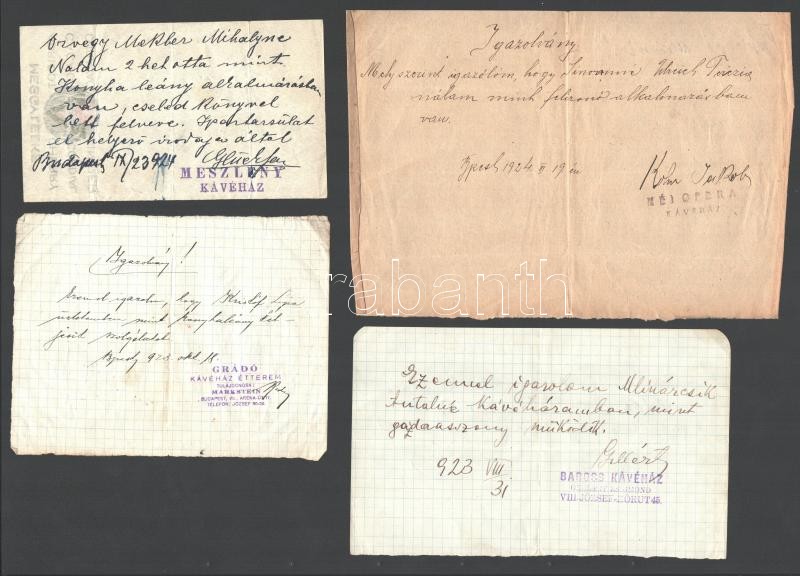 Özvegy Mekker Mihályne
Nalam 2 het otta mint
Konyha leány alkalmázásban
van, cseléd könyvel
lett felveve. Ipartarsulat
el helyező irodaja által
Budapest IX/23 924
MESZLÉNY
KÁVÉHÁZ
Igazolvány
Mely szerint igazolom, hogy
nálam mint felironő alkalmazásban
van.
Bpest 1924 II 19 én
Kohn Jakab
KÁVÉHÁZ
Igazolvány!
Ezennel igazolom, hogy
üzletemben mint konyhaleány tel-
jesít szolgálatot.
Bpest, 923. okt.
GRÁDÓ
KÁVÉHÁZ ÉTTEREM
TULAJDONOSA:
MARKSTEIN
BUDAPEST, VII., ARÉNA-ÚT
TELEFON: JÓZSEF
Ezennel igazolom Mlinárcsik
Antalné kávéházamban, mint
gazdaasszony működik.
923 VIII
31
Gellért
BAROSS KÁVÉHÁZ
VIII. JÓZSEF-KÖRUT 45.
arabanth